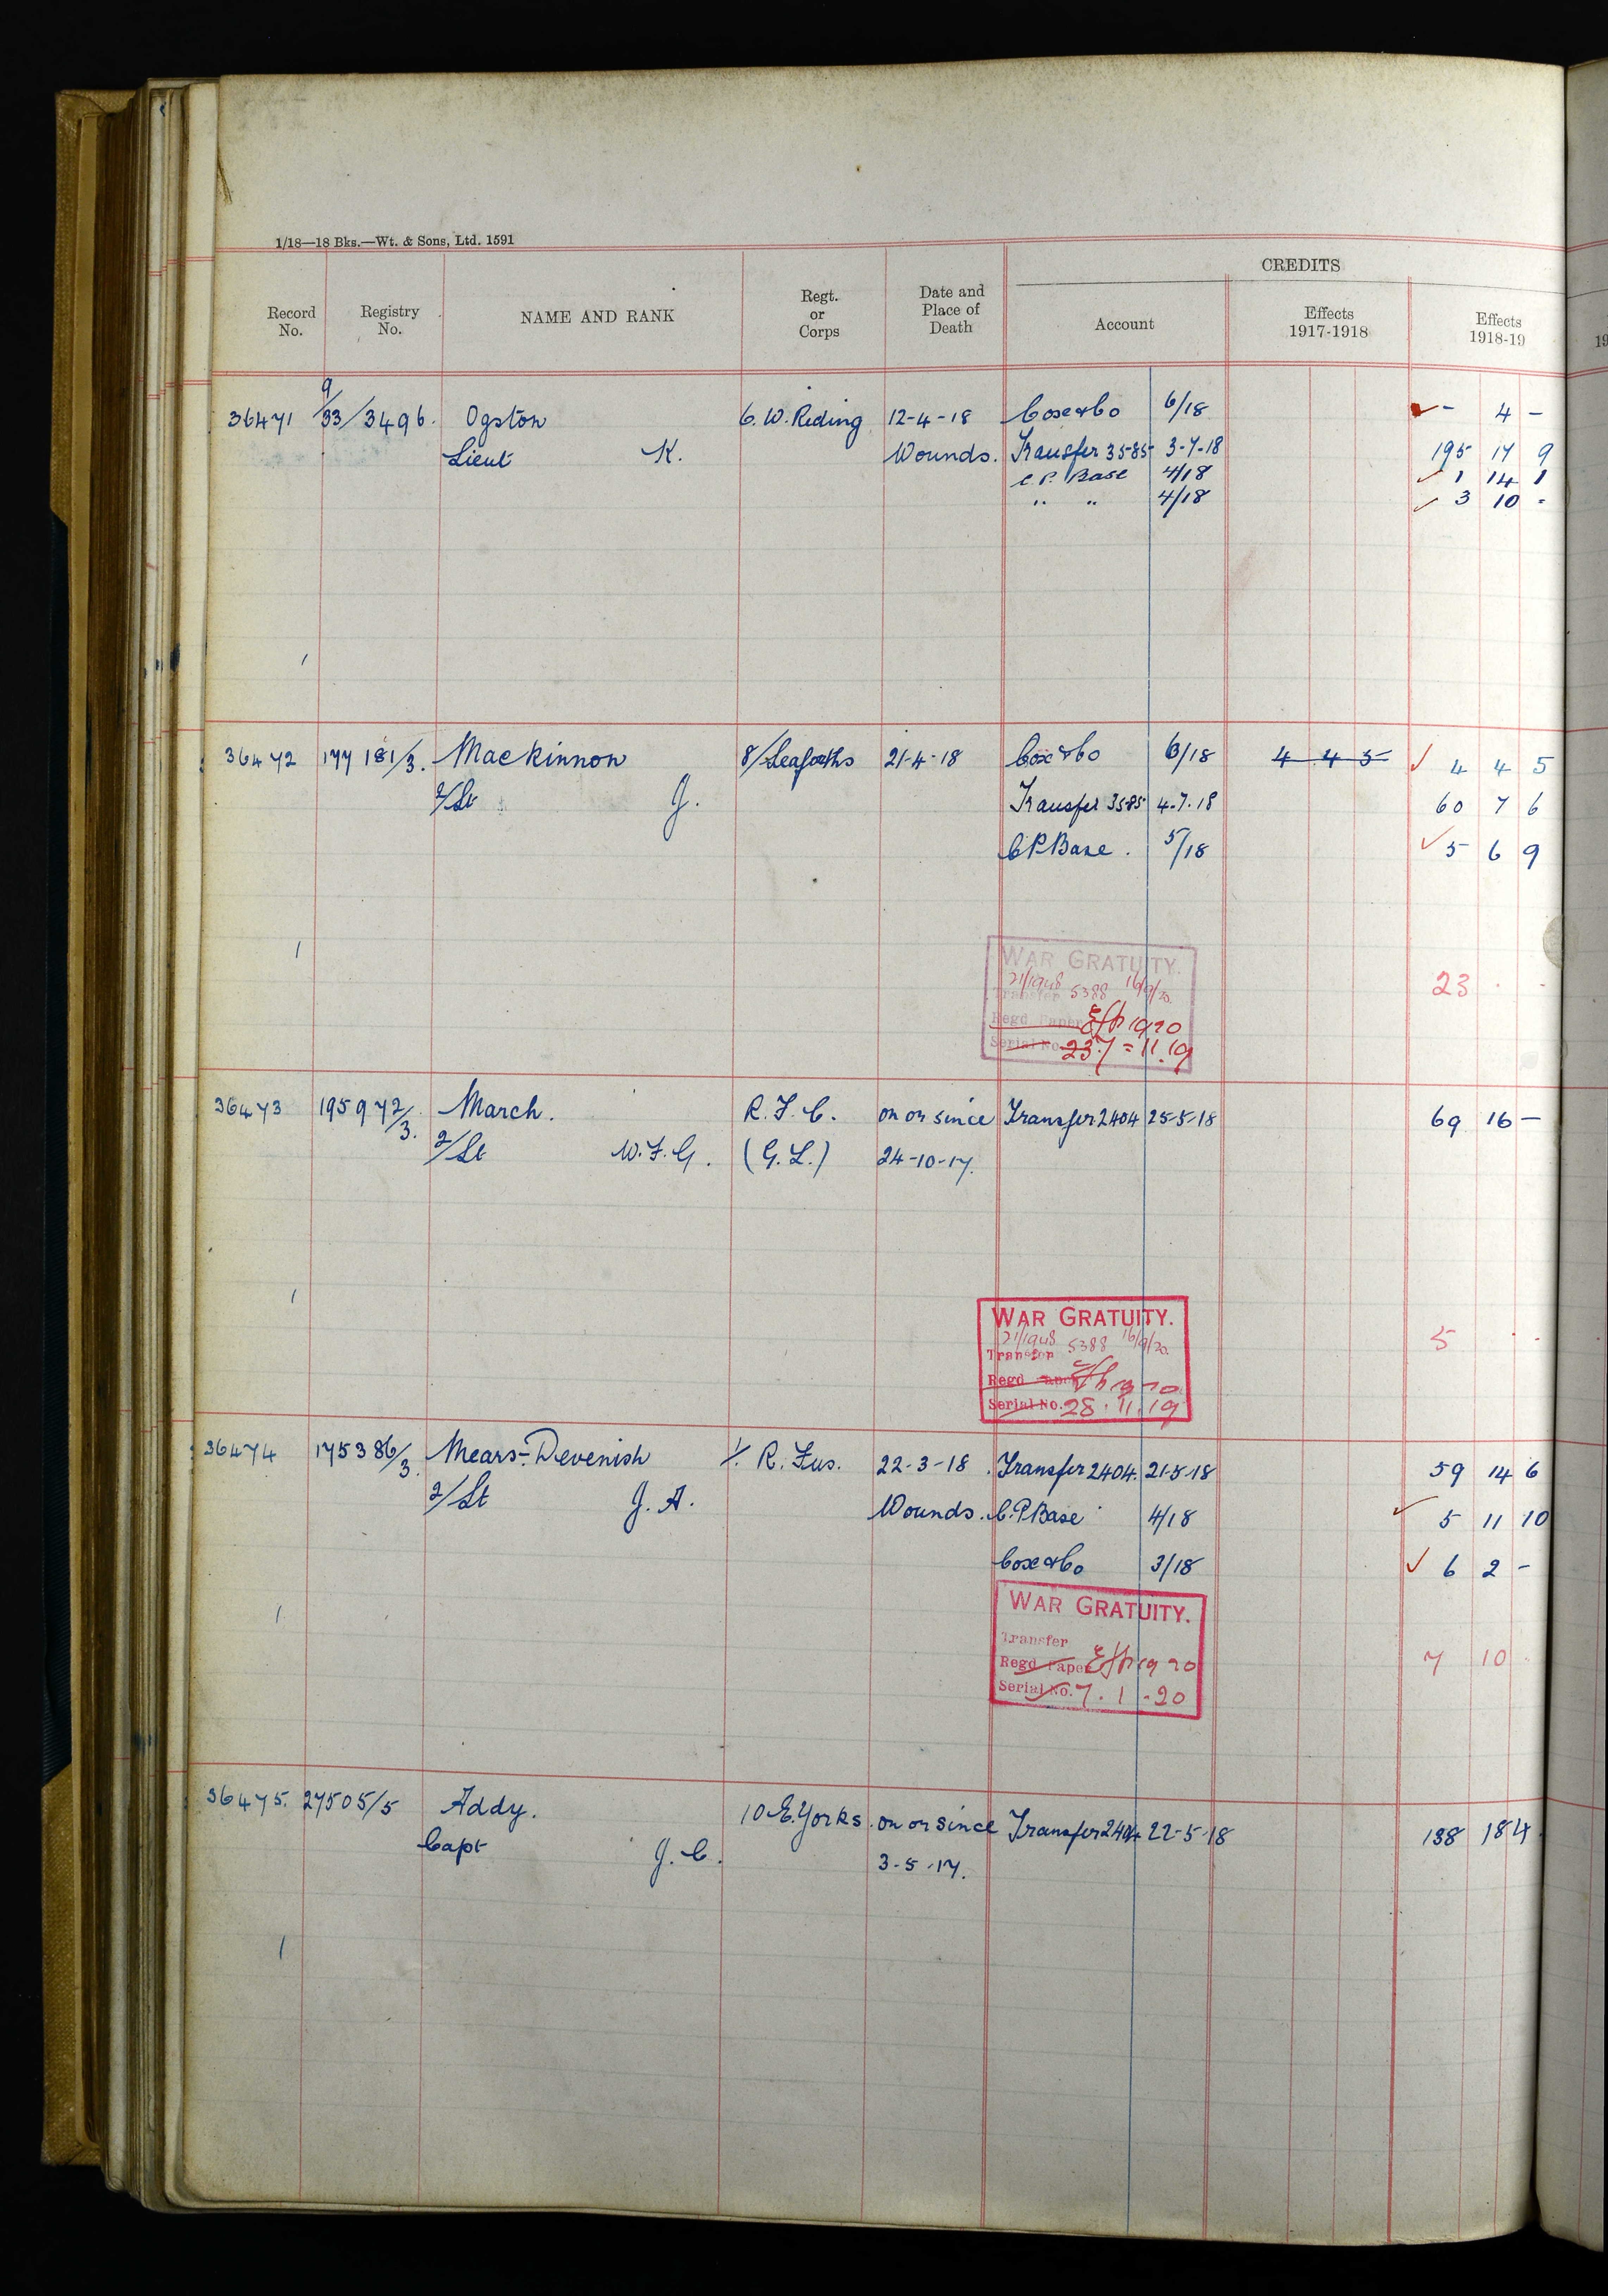 1/18—18 Bks.—Wt. & Sons, Ltd. 1591
CREDITS
Record No.
Registry No.
NAME AND RANK
Regt. or Corps
Date and Place of Death
Account
Effects 1917-1918
Effects 1918-19
19
36471 9/33/3496. Ogston 6. W. Riding 12-4-18 Cox & Co 6/18 - 4 -
Lieut K. Wounds. Transfer 3585 3-7-18 195 17 9
C.P. Base 4/18 1 14 1
" " 4/18 3 10 -
36472 177181/3. Mackinnon 8/Seaforths 21-4-18 Cox & Co 6/18 4 4 5 4 4 5
2/Lt J. Transfer 3585 4.7.18 60 7 6
C.P. Base. 5/18 5 6 9
WAR GRATUITY.
21/1948 16/9/20.
Transfer 5388 23 . .
Regd Paper Effts 19 20
Serial No. 11.19
36473 195972/3. March. R.F.C. on or since Transfer 2404 25-5-18 69 16 —
2/Lt W.F.G. (G.L.) 24-10-17.
WAR GRATUITY.
21/1948 16/9/20.
Transfer 5388 5 . .
Regd
Serial No. 28.11.19
36474 175386/3. Mears-Devenish 1/. R. Fus. 22-3-18. Transfer 2404. 21-5-18 59 14 6
2/Lt J. A. Wounds. C.P. Base 4/18 5 11 10
Cox & Co 3/18 6 2 -
WAR GRATUITY.
Transfer
Regd Paper Effts 19 20 7 10 .
Serial No. 7. 1 -20
36475. 27505/5 Addy. 10 E. Yorks. on or since Transfer 2404 22-5-18 138 18 4
Capt J. C. 3-5-17.